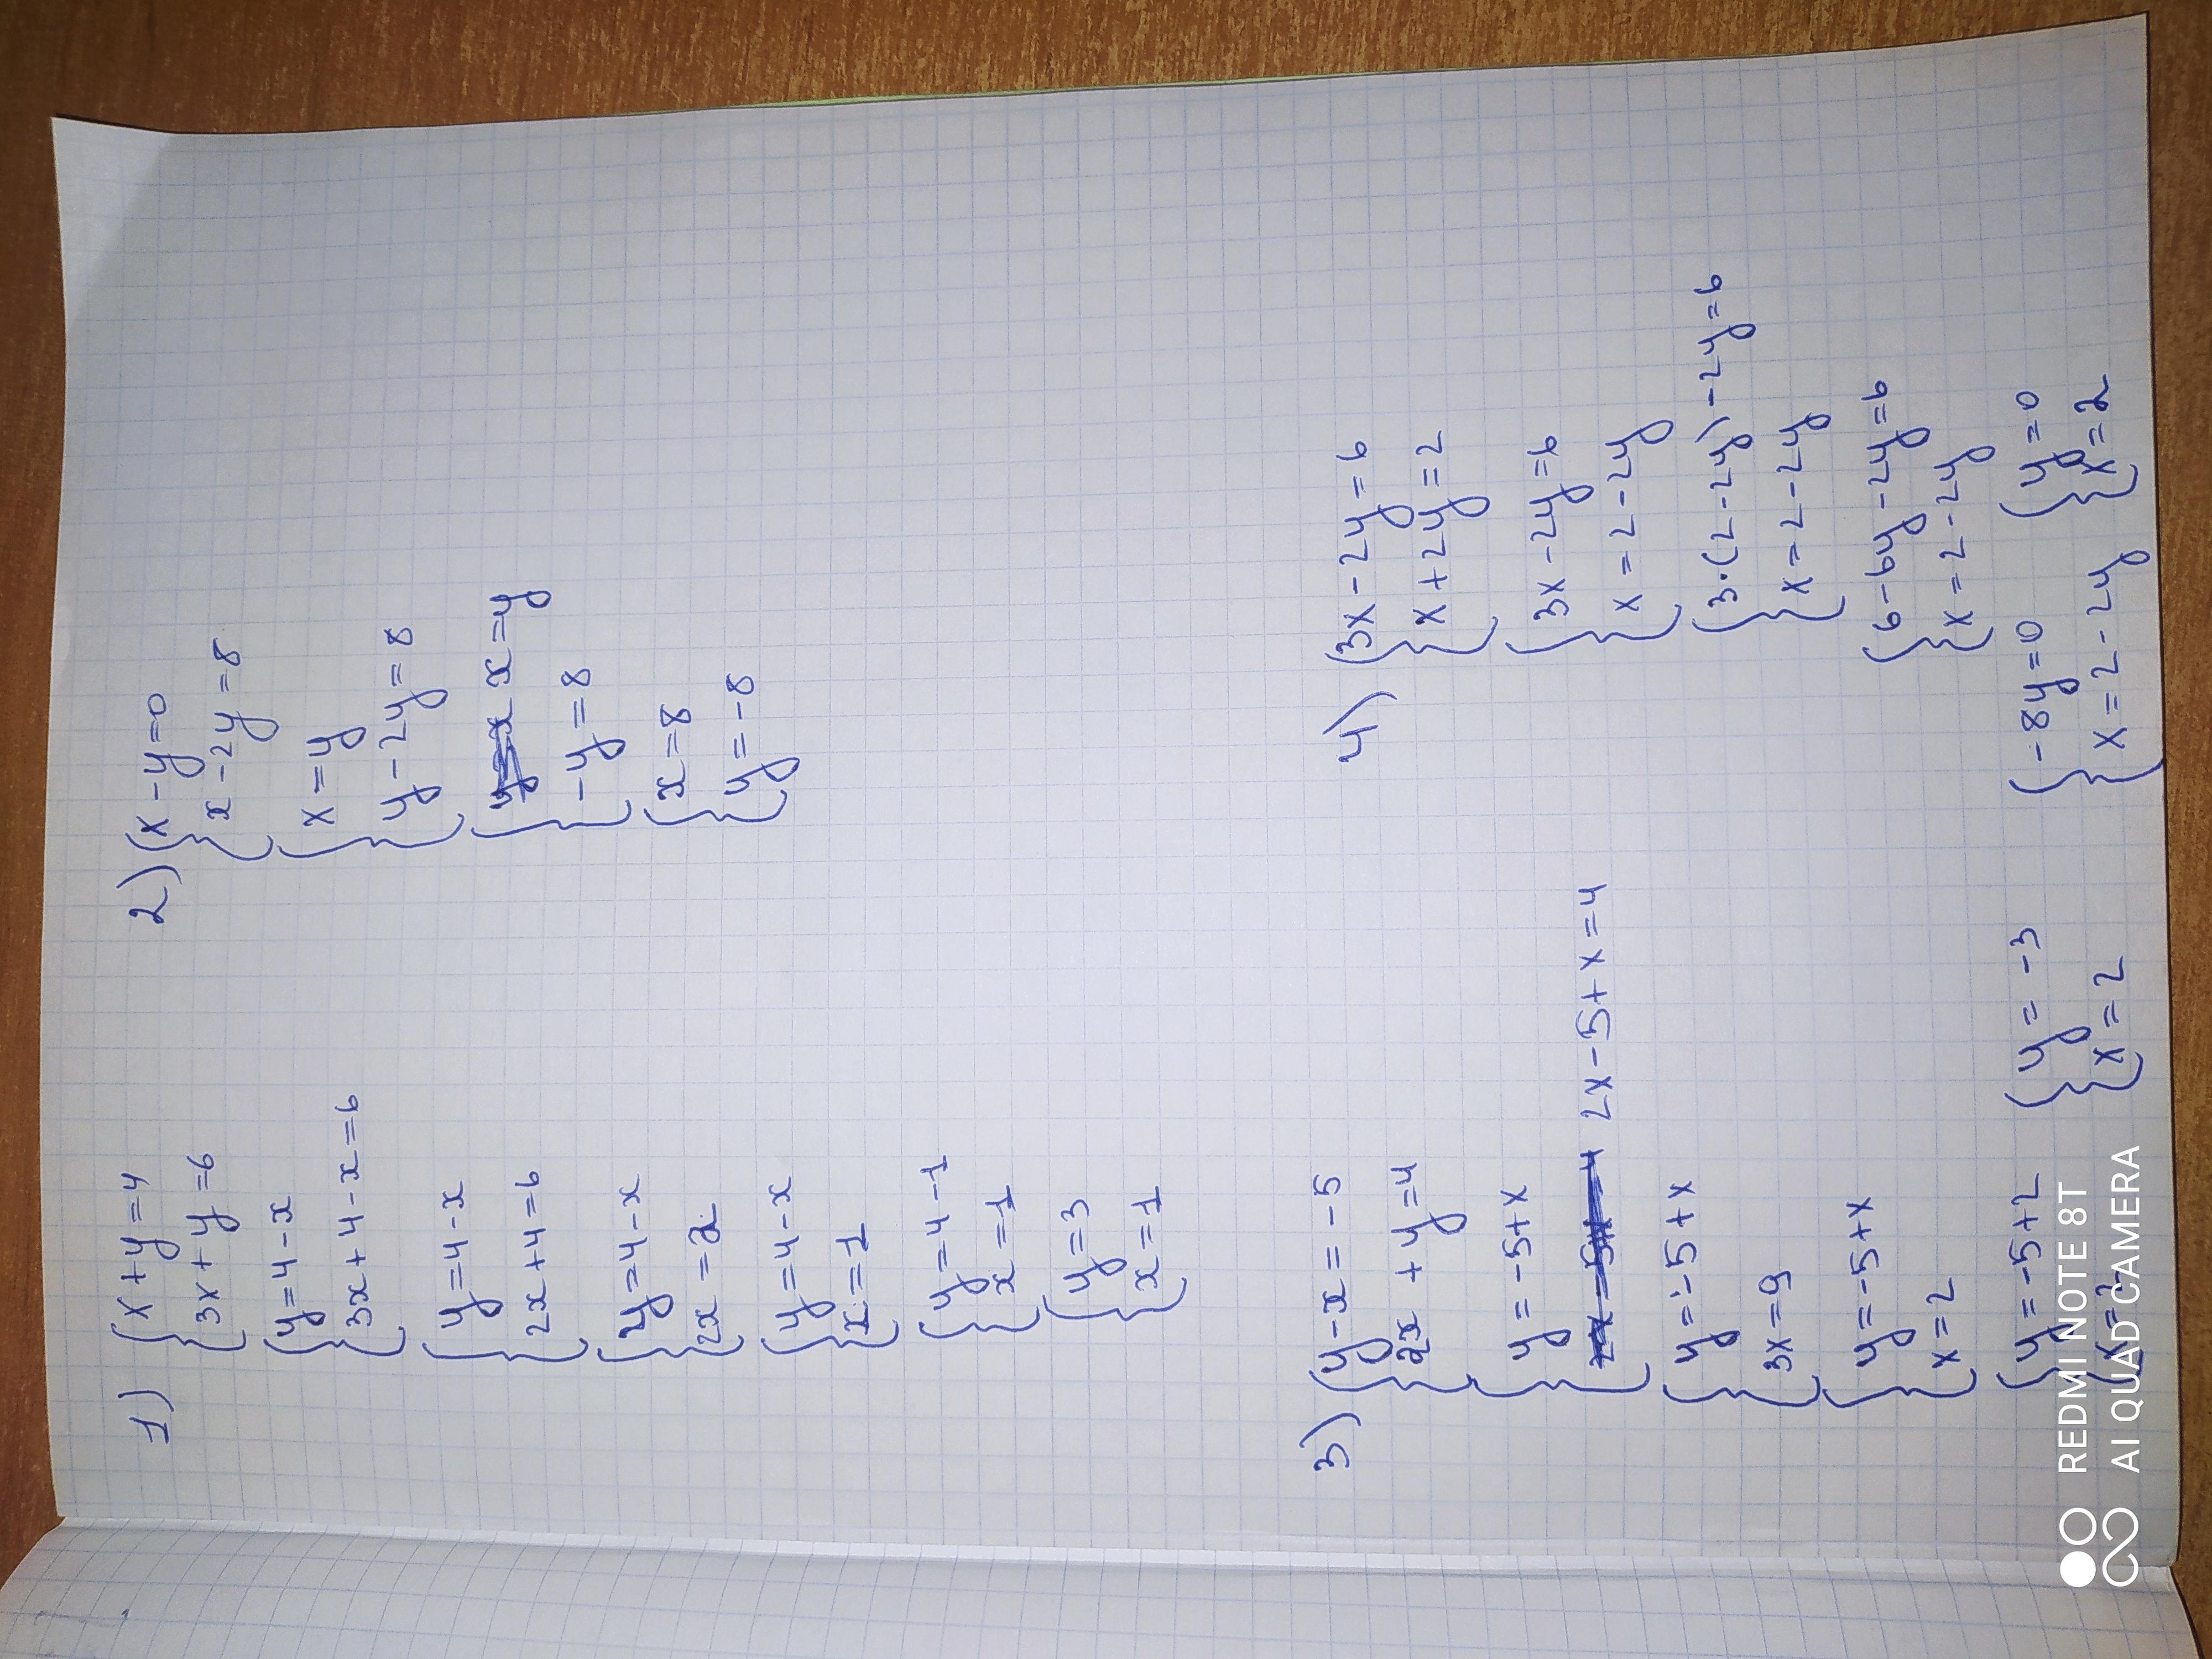 1)
x+y=4
3x+y=6
y=4-x
3x+4-x=6
y=4-x
2x+4=6
y=4-x
2x=2
y=4-x
x=1
y=4-1
x=1
y=3
x=1
2)
x-y=0
x-2y=8
x=y
y-2y=8
x=y
-y=8
x=8
y=-8
3)
y-x=-5
2x+y=4
y=-5+x
2x-5+x=4
y=-5+x
3x=9
y=-5+x
x=2
y=-5+2
x=2
y=-3
x=2
4)
3x-2y=6
x+2y=2
3x-2y=6
x=2-2y
3·(2-2y)-2y=6
x=2-2y
6-6y-2y=6
x=2-2y
-8y=0
x=2-2y
y=0
x=2
REDMI NOTE 8T
AI QUAD CAMERA